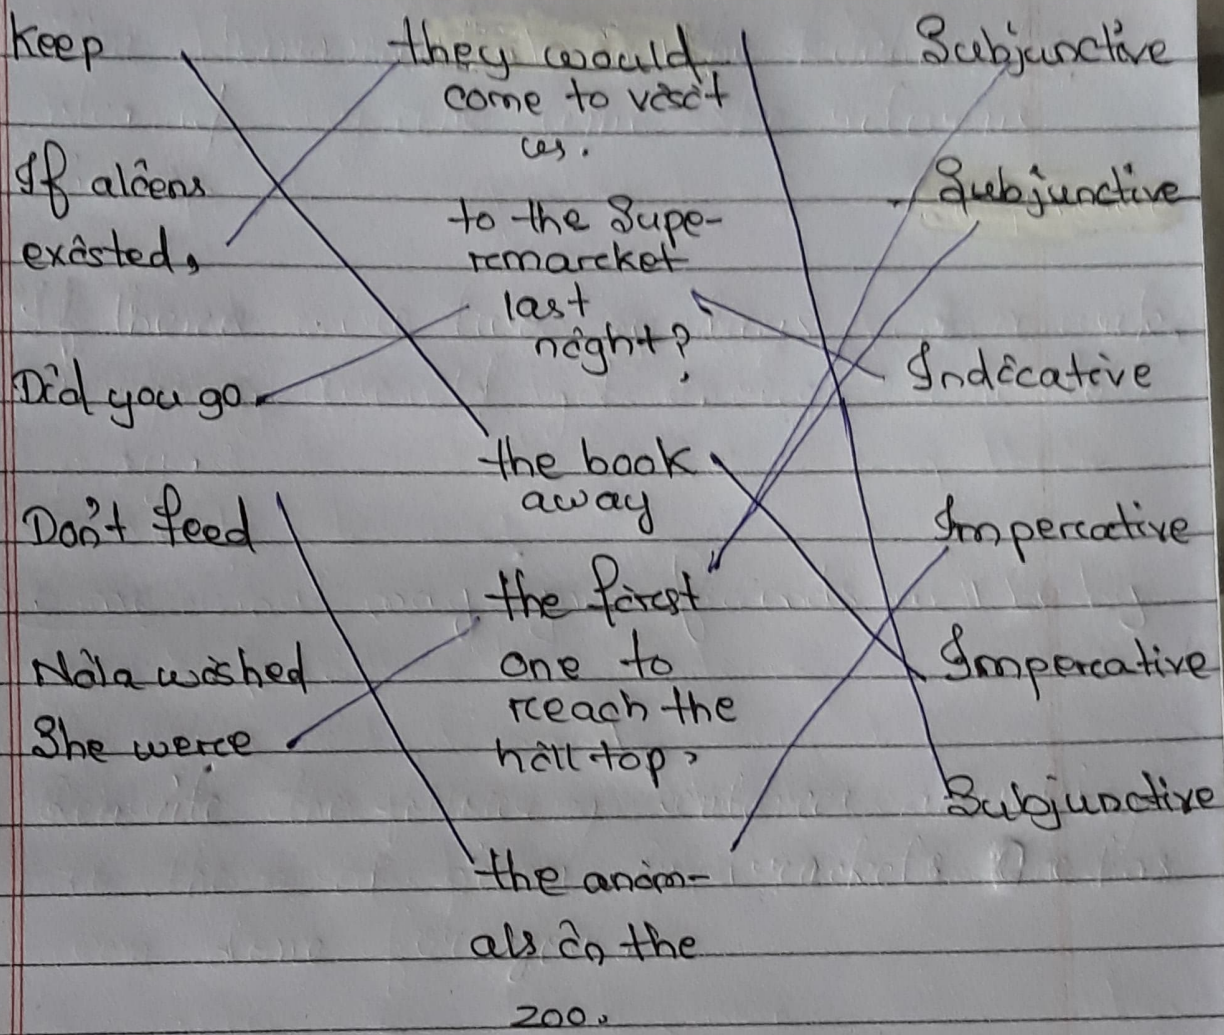 Keep
If aliens
existed,
Did you go
Don't feed
Nila wished
She were
they would
come to visit
us.
to the Supe-
rmarket
last
night?
the book
away
the first
one to
reach the
hill top.
the anim-
als in the
zoo.
Subjunctive
Subjunctive
Indicative
Imperative
Imperative
Subjunctive